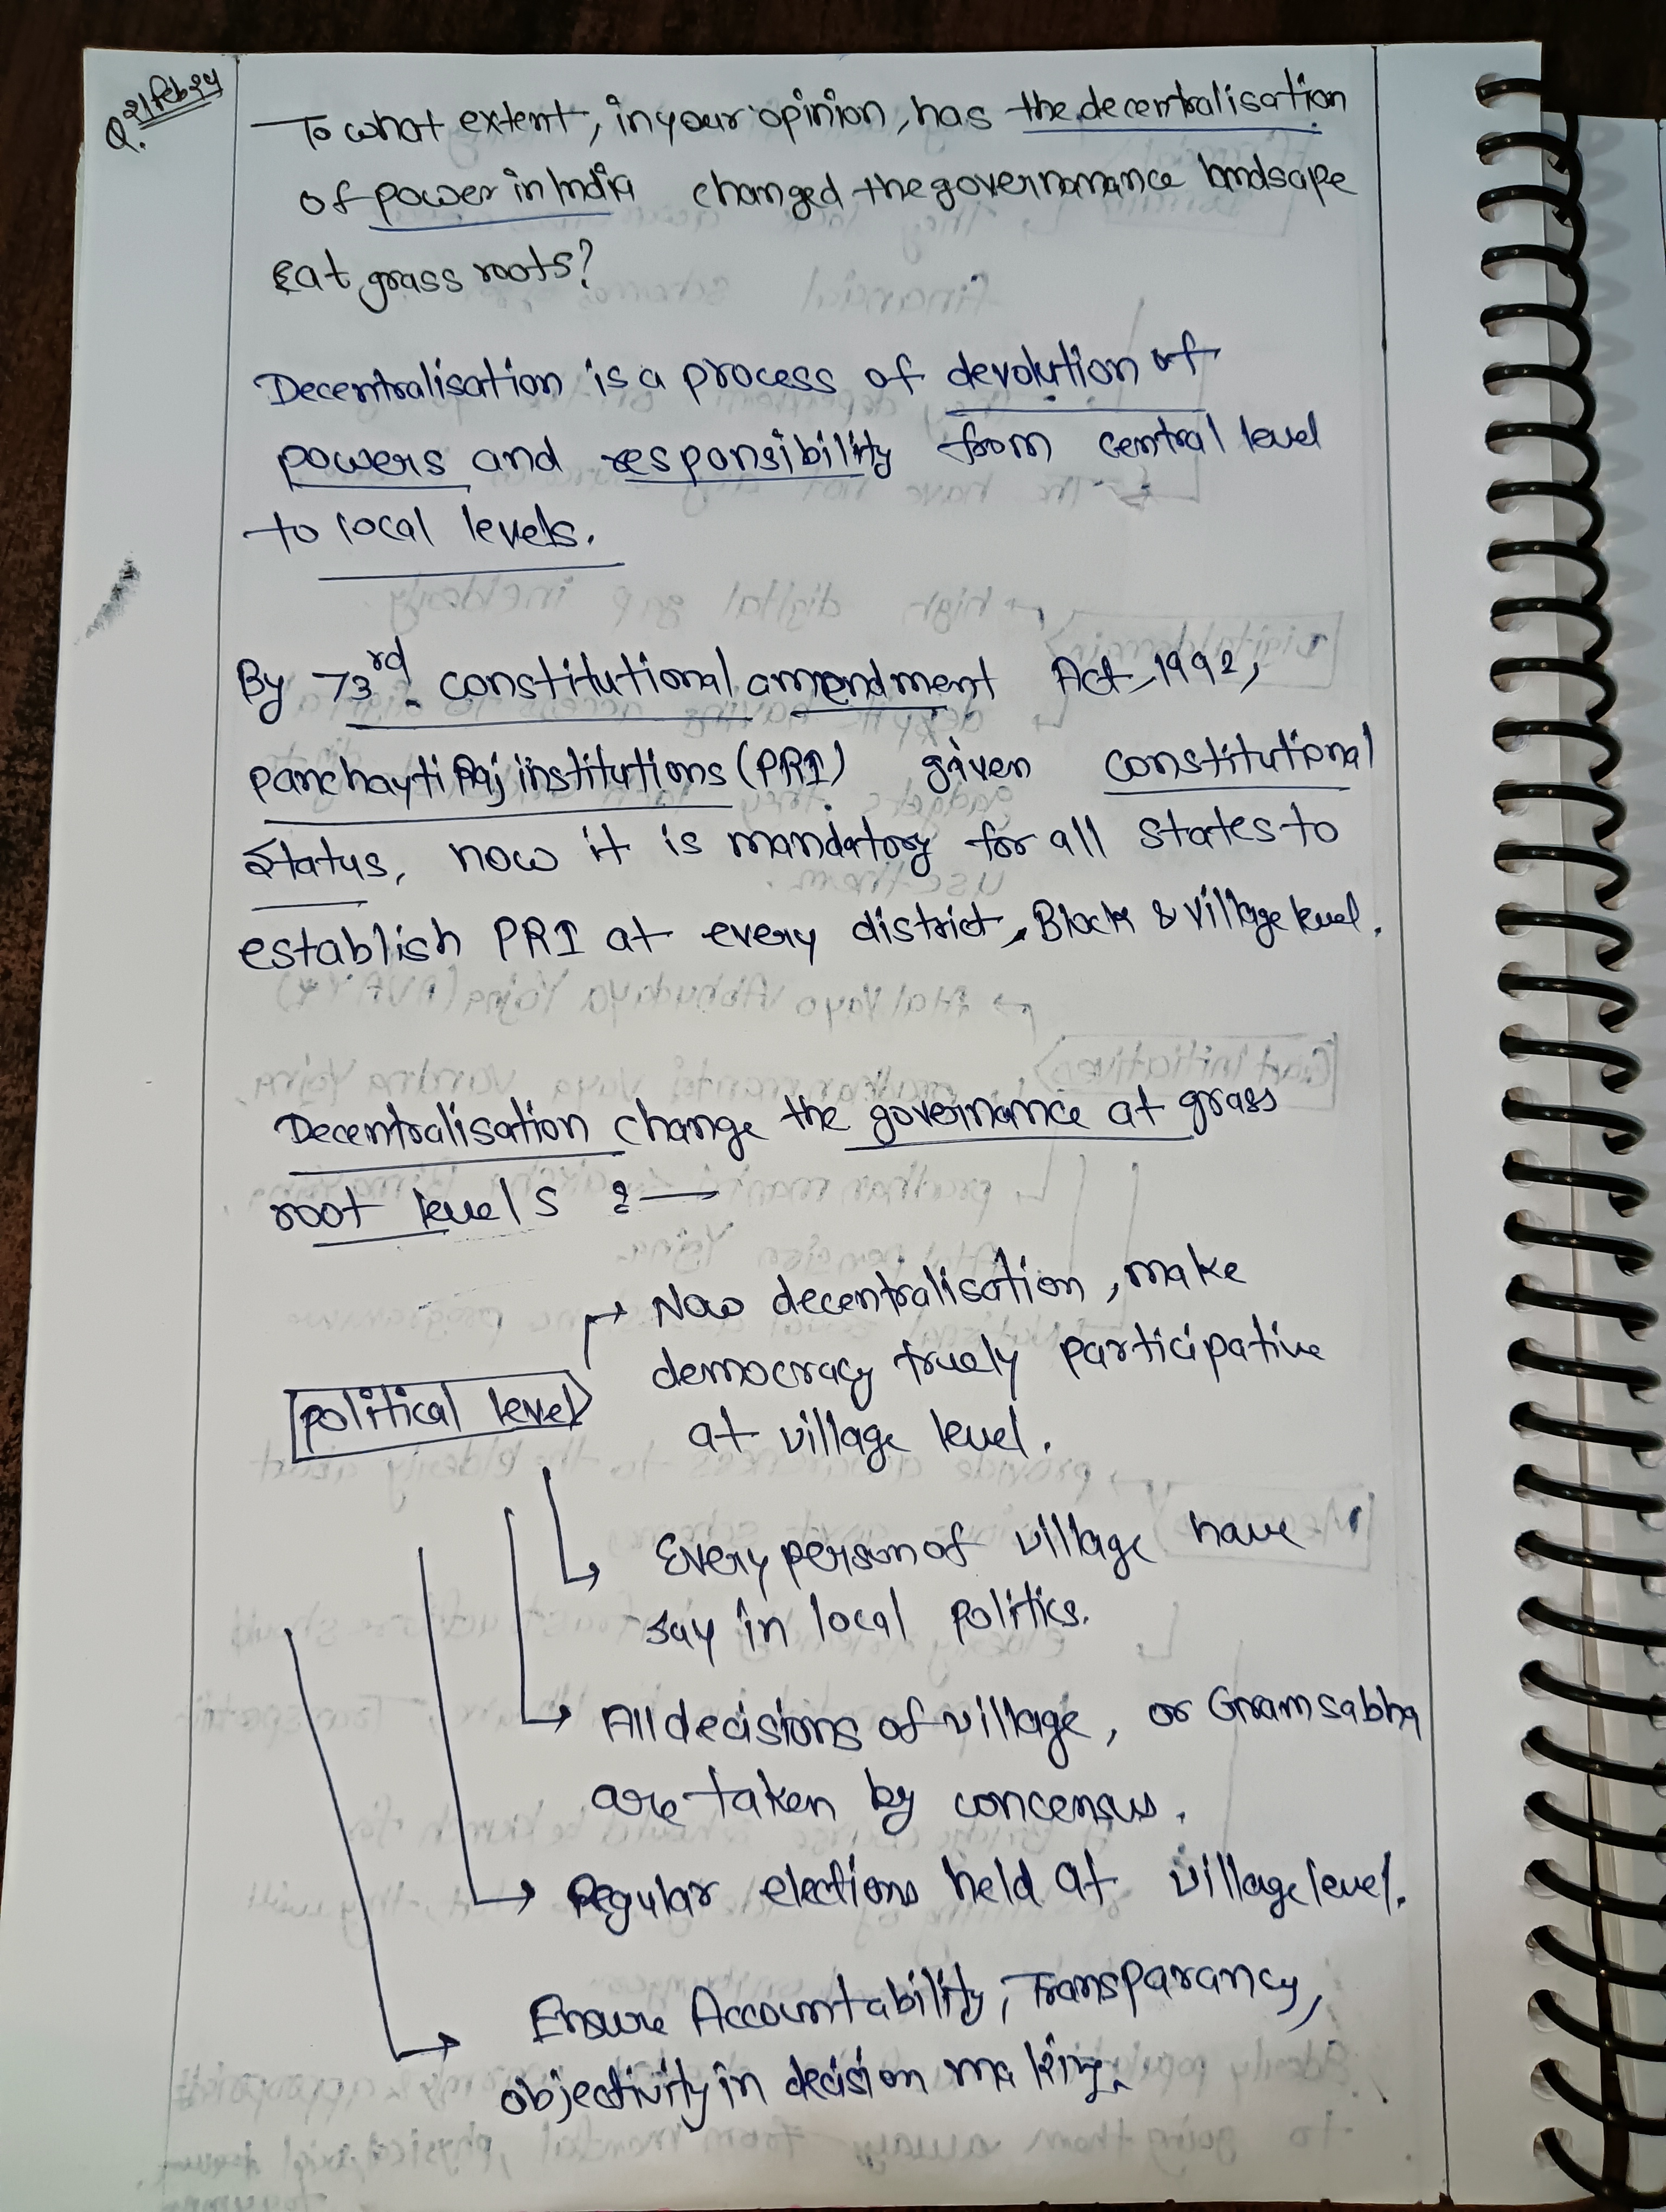 21 Feb 24
Q.
To what extent, in your opinion, has the decentralisation
of power in India changed the governmance landscape
at grass roots?
Decentralisation is a process of devolution of
powers and responsibility from central level
to local levels.
By 73rd constitutional amendment Act, 1992,
panchayti Raj institutions (PRI) given constitutional
status, now it is mandatory for all states to
establish PRI at every district, Block & village level.
Decentralisation change the governance at grass
root levels :—
→ Now decentralisation, make
democracy truely participative
political level
at village level.
↳ Every person of village have
say in local politics.
↳ All decisions of village, or Gram sabha
are taken by concensus.
↳ Regular elections held at village level.
↳ Ensure Accountability, Transparancy,
objectivity in decision making.